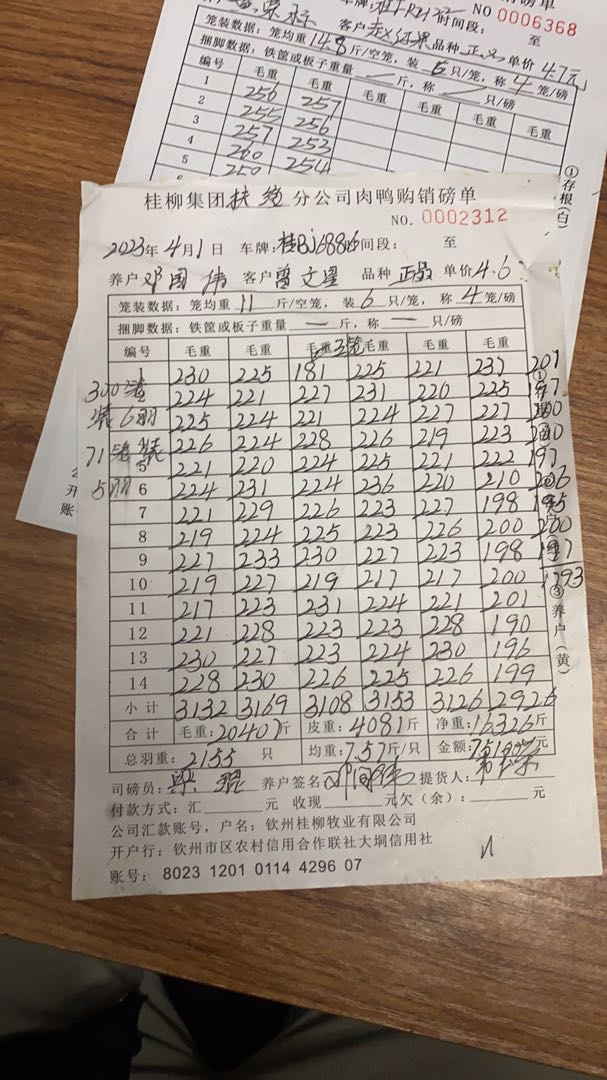 NO 0006368
时间段: 至
客户 品种 正品 单价 4.7元
笼装数据: 笼均重 14.8 斤/空笼, 装 6 只/笼, 称 4 笼/磅
捆脚数据: 铁筐或板子重量 — 斤, 称 — 只/磅
编号 毛重 毛重 毛重 毛重 毛重 毛重
1 256 257
2 255 256
3 257 253
4 260 254
5 250
①存根(白)
桂柳集团扶绥分公司肉鸭购销磅单
NO. 0002312
2023年4月1日 车牌: 桂BJ6886 时间段: 至
养户 邓国伟 客户 曾文星 品种 正品 单价 4.6
笼装数据: 笼均重 11 斤/空笼, 装 6 只/笼, 称 4 笼/磅
捆脚数据: 铁筐或板子重量 — 斤, 称 — 只/磅
编号 毛重 毛重 毛重 毛重 毛重 毛重
1 230 225 181 225 221 237 201
2 224 221 227 231 220 225 197
3 225 224 221 224 227 227 200
4 226 224 228 226 219 223 200
5 221 220 224 225 221 222 197
6 224 231 224 236 220 210 206
7 221 229 226 223 227 198 195
8 219 224 225 223 226 200 200
9 227 233 230 227 223 198 197
10 219 227 219 217 217 200 1793
11 217 223 231 224 221 201
12 221 228 223 223 228 190
13 230 227 223 224 230 196
14 228 230 226 225 226 199
300笼
装6羽
71笼装
5羽
小计 3132 3169 3108 3153 3126 2926
合计 毛重: 20407斤 皮重: 4081斤 净重: 16326斤
总羽重: 2155 只 均重: 7.57斤/只 金额: 元
司磅员: 梁 养户签名 邓国伟 提货人:
付款方式: 汇 元 收现 元欠(余): 元
公司汇款账号, 户名: 钦州桂柳牧业有限公司
开户行: 钦州市区农村信用合作联社大垌信用社
账号: 8023 1201 0114 4296 07
③养户(黄)